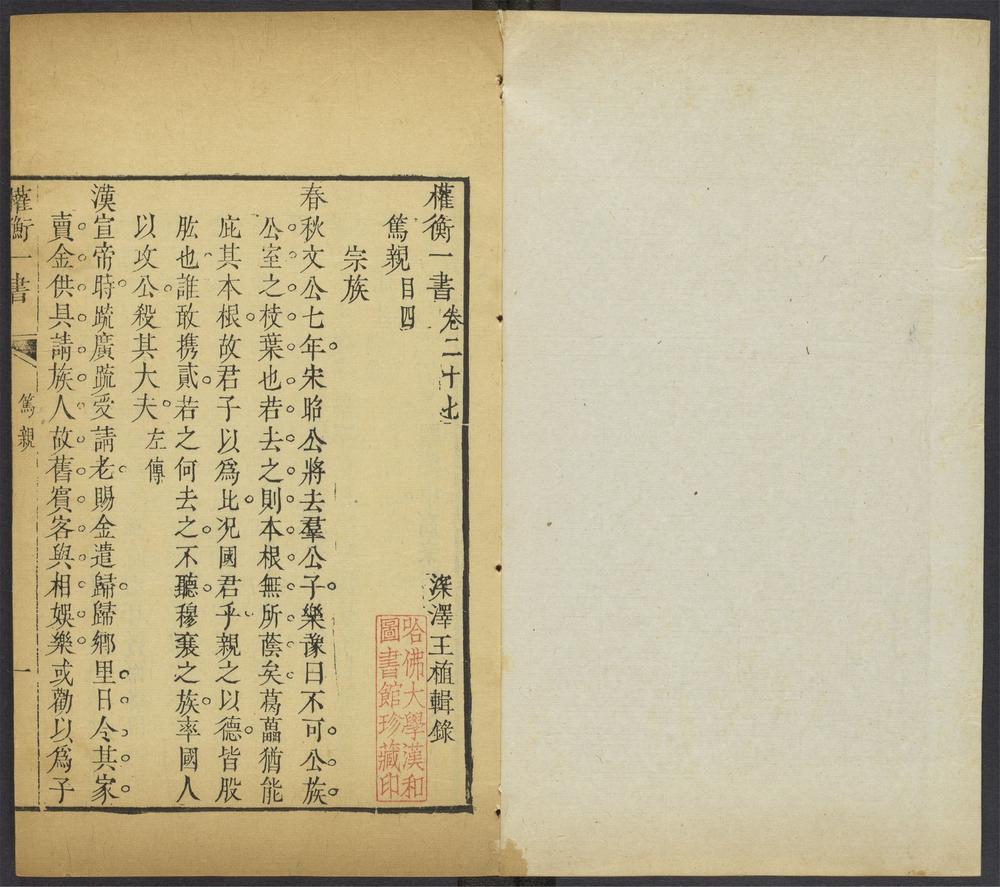 權衡一書卷二十七
深澤王植輯錄
篤親目四
宗族
春秋文公七年宋昭公將去羣公子樂豫曰不可公族
公室之枝葉也若去之則本根無所蔭矣葛藟猶能
庇其本根故君子以爲比况國君乎親之以德皆股
肱也誰敢携貳若之何去之不聽穆襄之族率國人
以攻公殺其大夫左傳
漢宣帝時䟽廣䟽受請老賜金遣歸歸鄉里日令其家
賣金供具請族人故舊賓客與相娛樂或勸以爲子
權衡一書
篤親
一
哈佛大學漢和
圖書館珍藏印